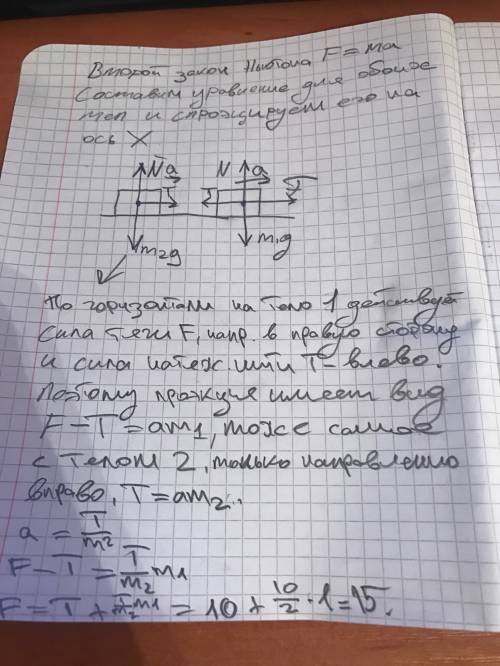 Второй закон Ньютона F = ma
Составим уравнение для обоих
тел и спроэцируем его на
ось X
N a N a T
m2g m1g
По горизонтали на тело 1 действует
сила тяги F, напр. в правую сторону
и сила натяж. нити T - влево.
Поэтому проэкция имеет вид
F - T = am1, тоже самое
с телом 2, только направлено
вправо, T = am2..
a = T/m2
F - T = T/m2 m1
F = T + T/m2 m1 = 10 + 10/2 · 1 = 15.